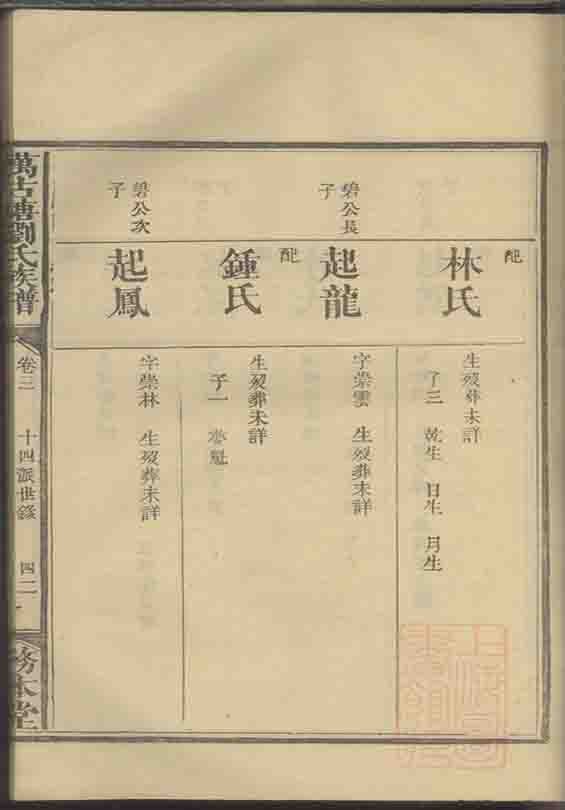 配
林氏
生歿葬未詳
子三 乾生 日生 月生
碧公長
子
起龍
字崇雲 生歿葬未詳
配
鍾氏
生歿葬未詳
子一
碧公次
子
起鳳
字崇林 生歿葬未詳
萬古塘劉氏族譜
卷三
十四派世錄
四二
務本堂